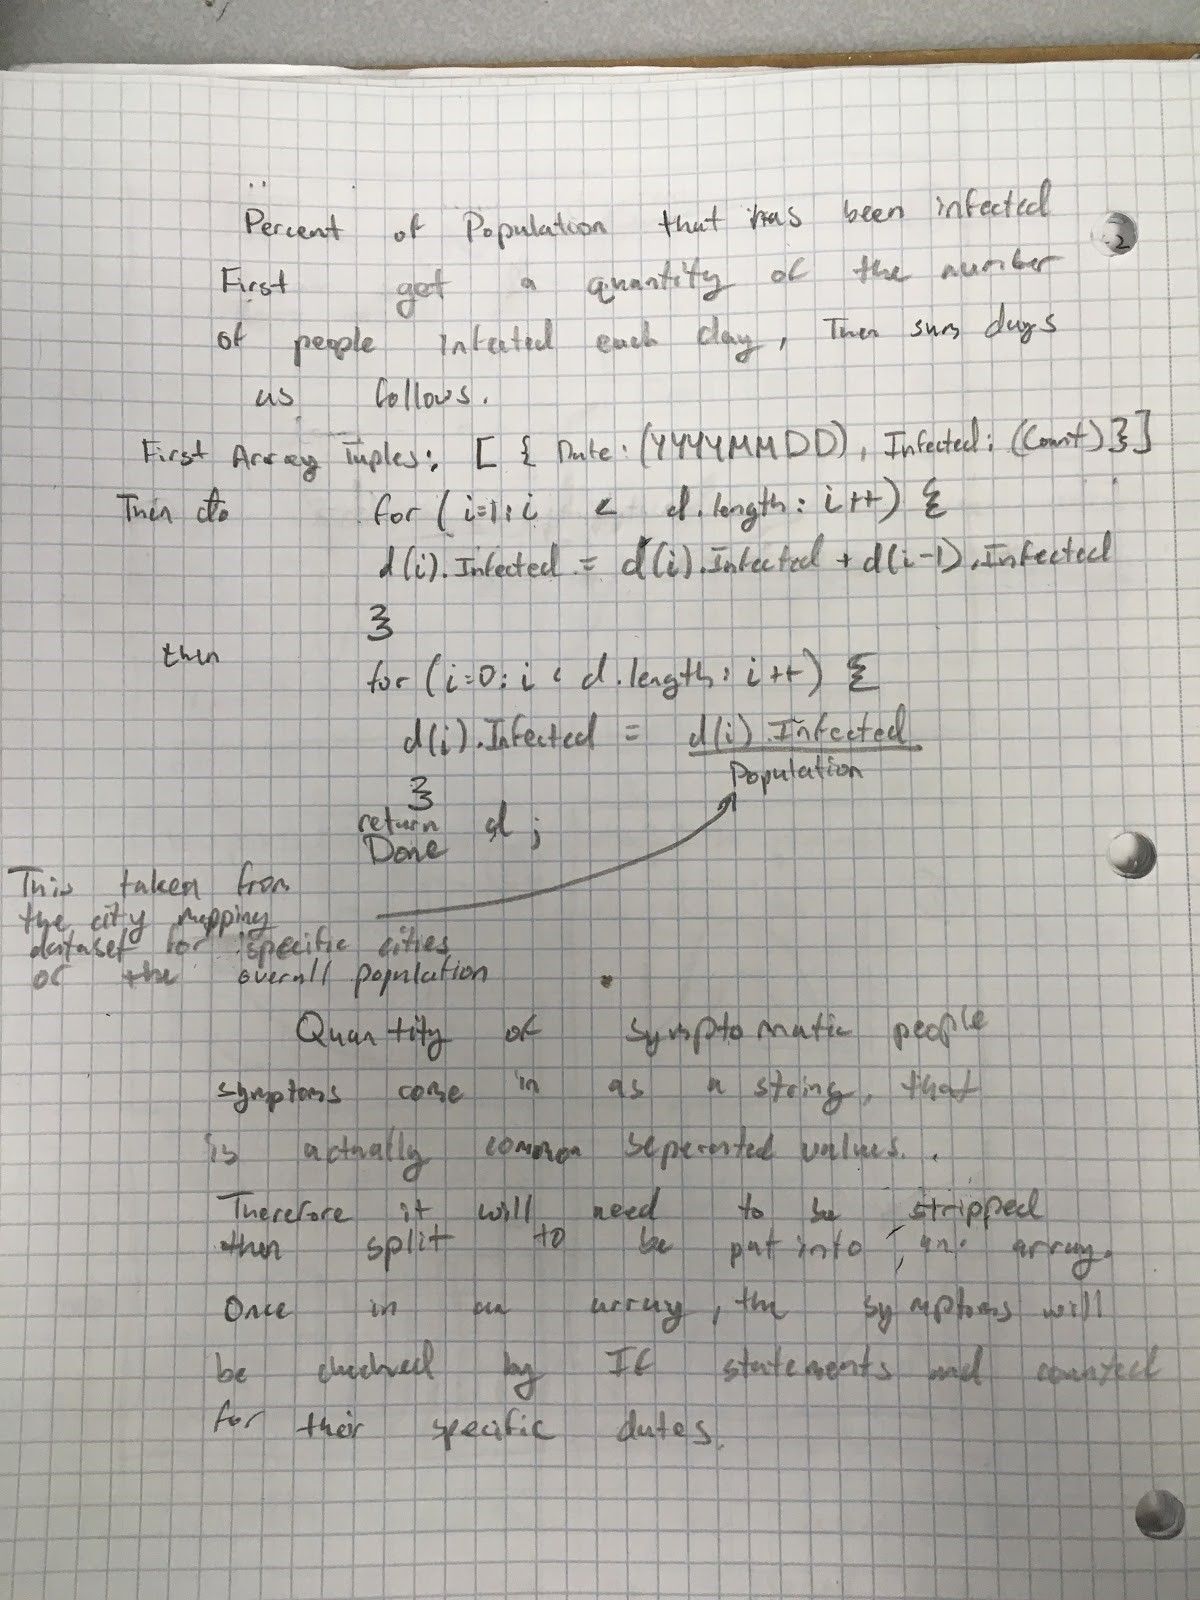 Percent of Population that has been infected
2
First get a quantity of the number
of people infected each day, Then sum days
as follows.
First Array Tuples: [ { Date: (YYYYMMDD), Infected: (Count) } ]
Then do for ( i=1; i < d.length; i++) {
d(i).Infected = d(i).Infected + d(i-1).Infected
}
then
for (i=0; i < d.length; i++) {
d(i).Infected = d(i).Infected
Population
}
return d;
Done
This taken from
the city mapping
dataset for specific cities
or the overall population
Quantity of symptomatic people
symptoms come in as a string, that
is actually common seperated values.
Therefore it will need to be stripped
then split to be put into an array.
Once in an array, the symptoms will
be checked by If statements and counted
for their specific dates.